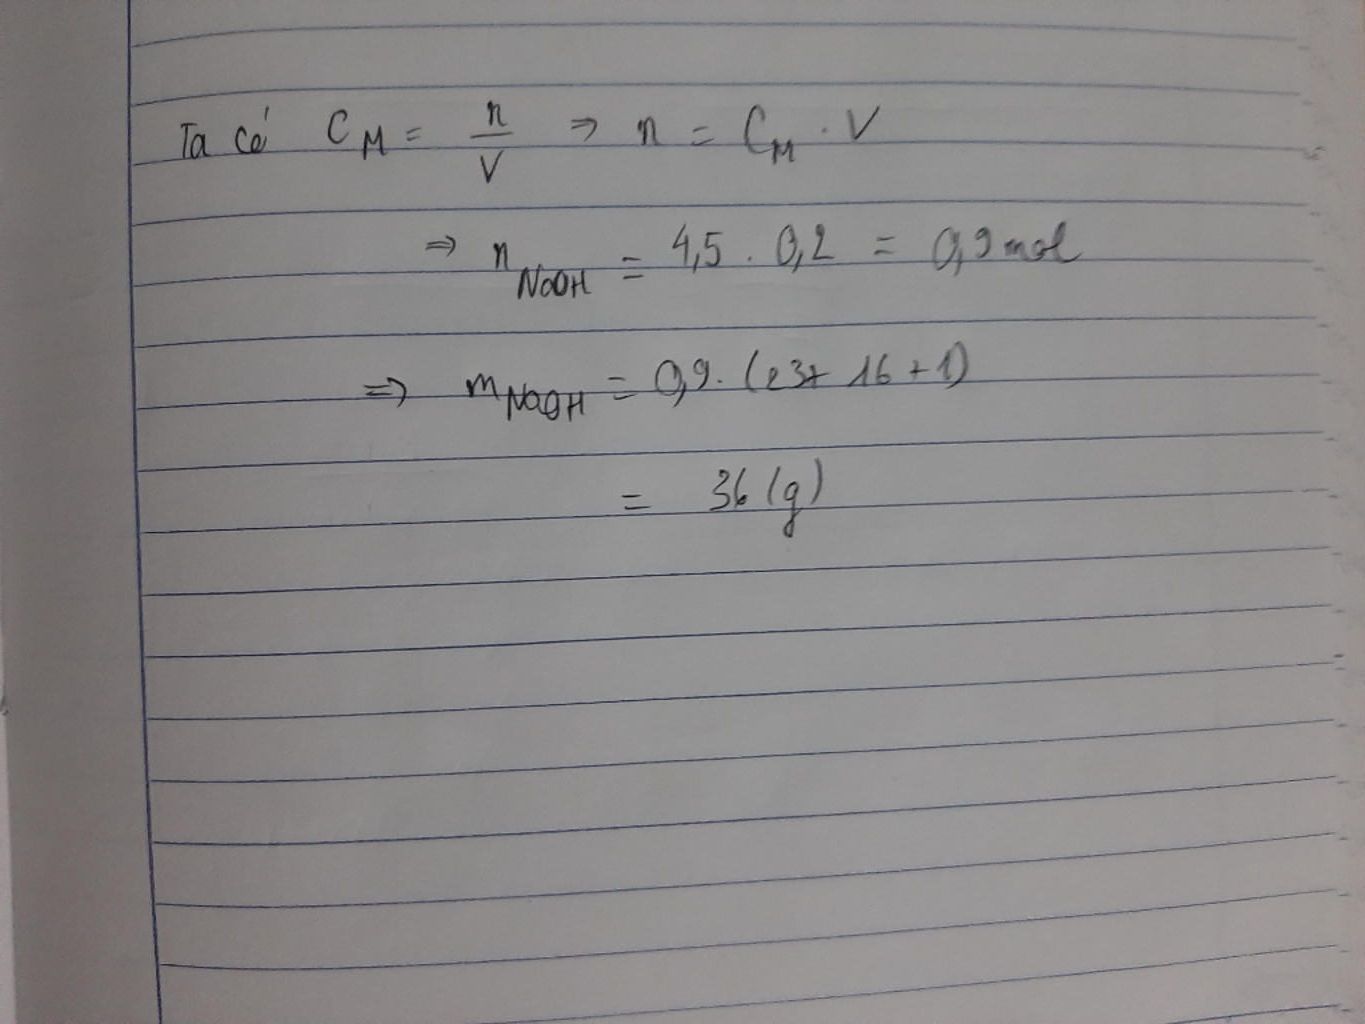 Ta có C_M = n/V ⇒ n = C_M . V
⇒ n_NaOH = 4,5 . 0,2 = 0,9 mol
⇒ m_NaOH = 0,9. (23+ 16 + 1)
= 36 (g)